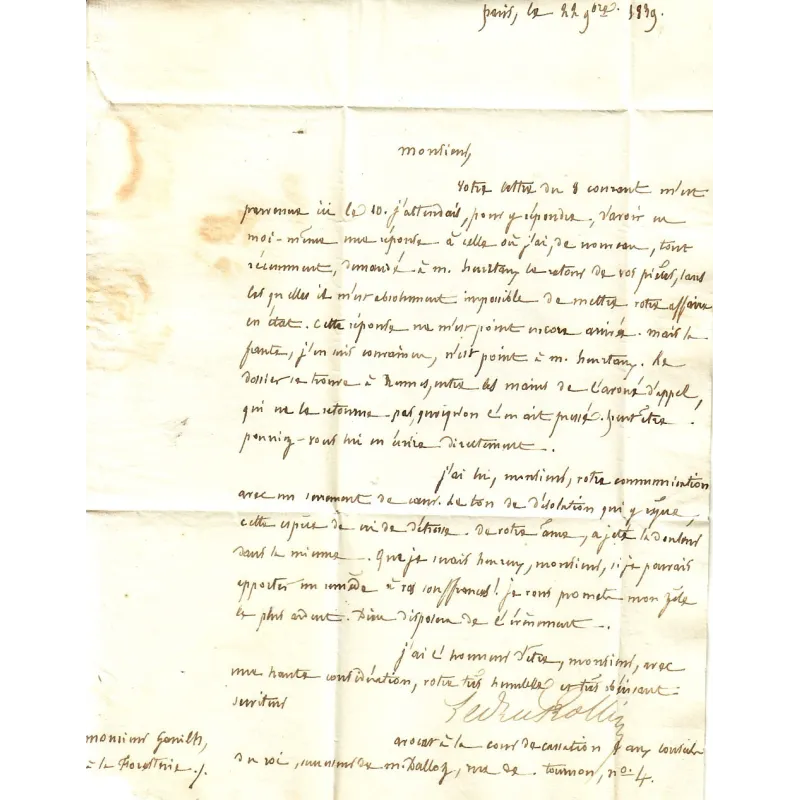 Paris, le 22 9bre. 1839.
monsieur,
Votre lettre du 8 courant m'est
parvenue ici le 10. j'attendais, pour y répondre, d'avoir eu
moi-même une réponse à celle où j'ai, de nouveau, tout
récemment, demandé à m. le retour de vos pièces, sans
lesquelles il m'est absolument impossible de mettre votre affaire
en état. cette réponse ne m'est point encore arrivée. mais la
faute, j'en suis convaincu, n'est point à m. Le
dossier se trouve à Rennes, entre les mains de l'avoué d'appel,
qui ne le retourne pas, quoiqu'on l'en ait pressé. peut être
pourriez-vous lui en écrire directement.
j'ai lu, monsieur, votre communication
avec un serrement de cœur. Le ton de désolation qui y règne,
cette espèce de cri de détresse de votre âme, a jeté la douleur
dans la mienne. Que je serais heureux, monsieur, si je pouvais
apporter un remède à vos souffrances! je vous promets mon zèle
le plus ardent. Dieu disposera de l'évènement.
j'ai l'honneur d'être, monsieur, avec
une haute considération, votre très humble et très obéissant
serviteur
Ledru Rollin
avocat à la cour de cassation & aux conseils
du roi, successeur de m. Dalloz, rue de tournon, no. 4.
monsieur
à la